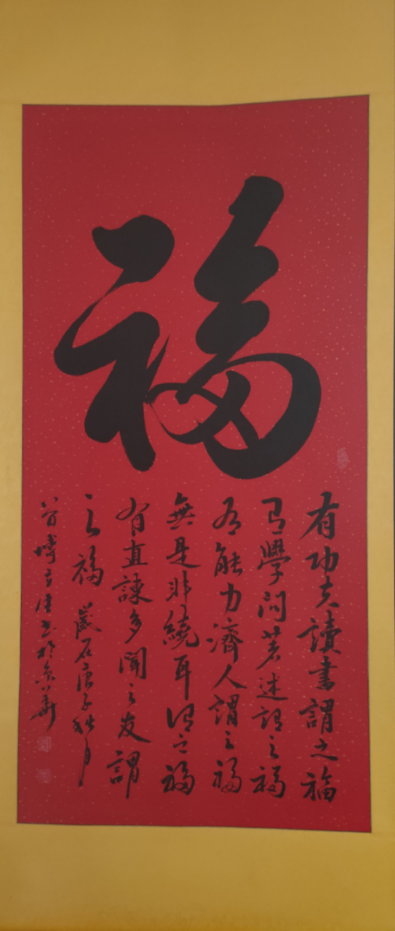 福
有功夫讀書謂之福
有學問著述謂之福
有能力濟人謂之福
無是非繞耳謂之福
有直諒多聞之友謂
之福 歲在庚子秋月